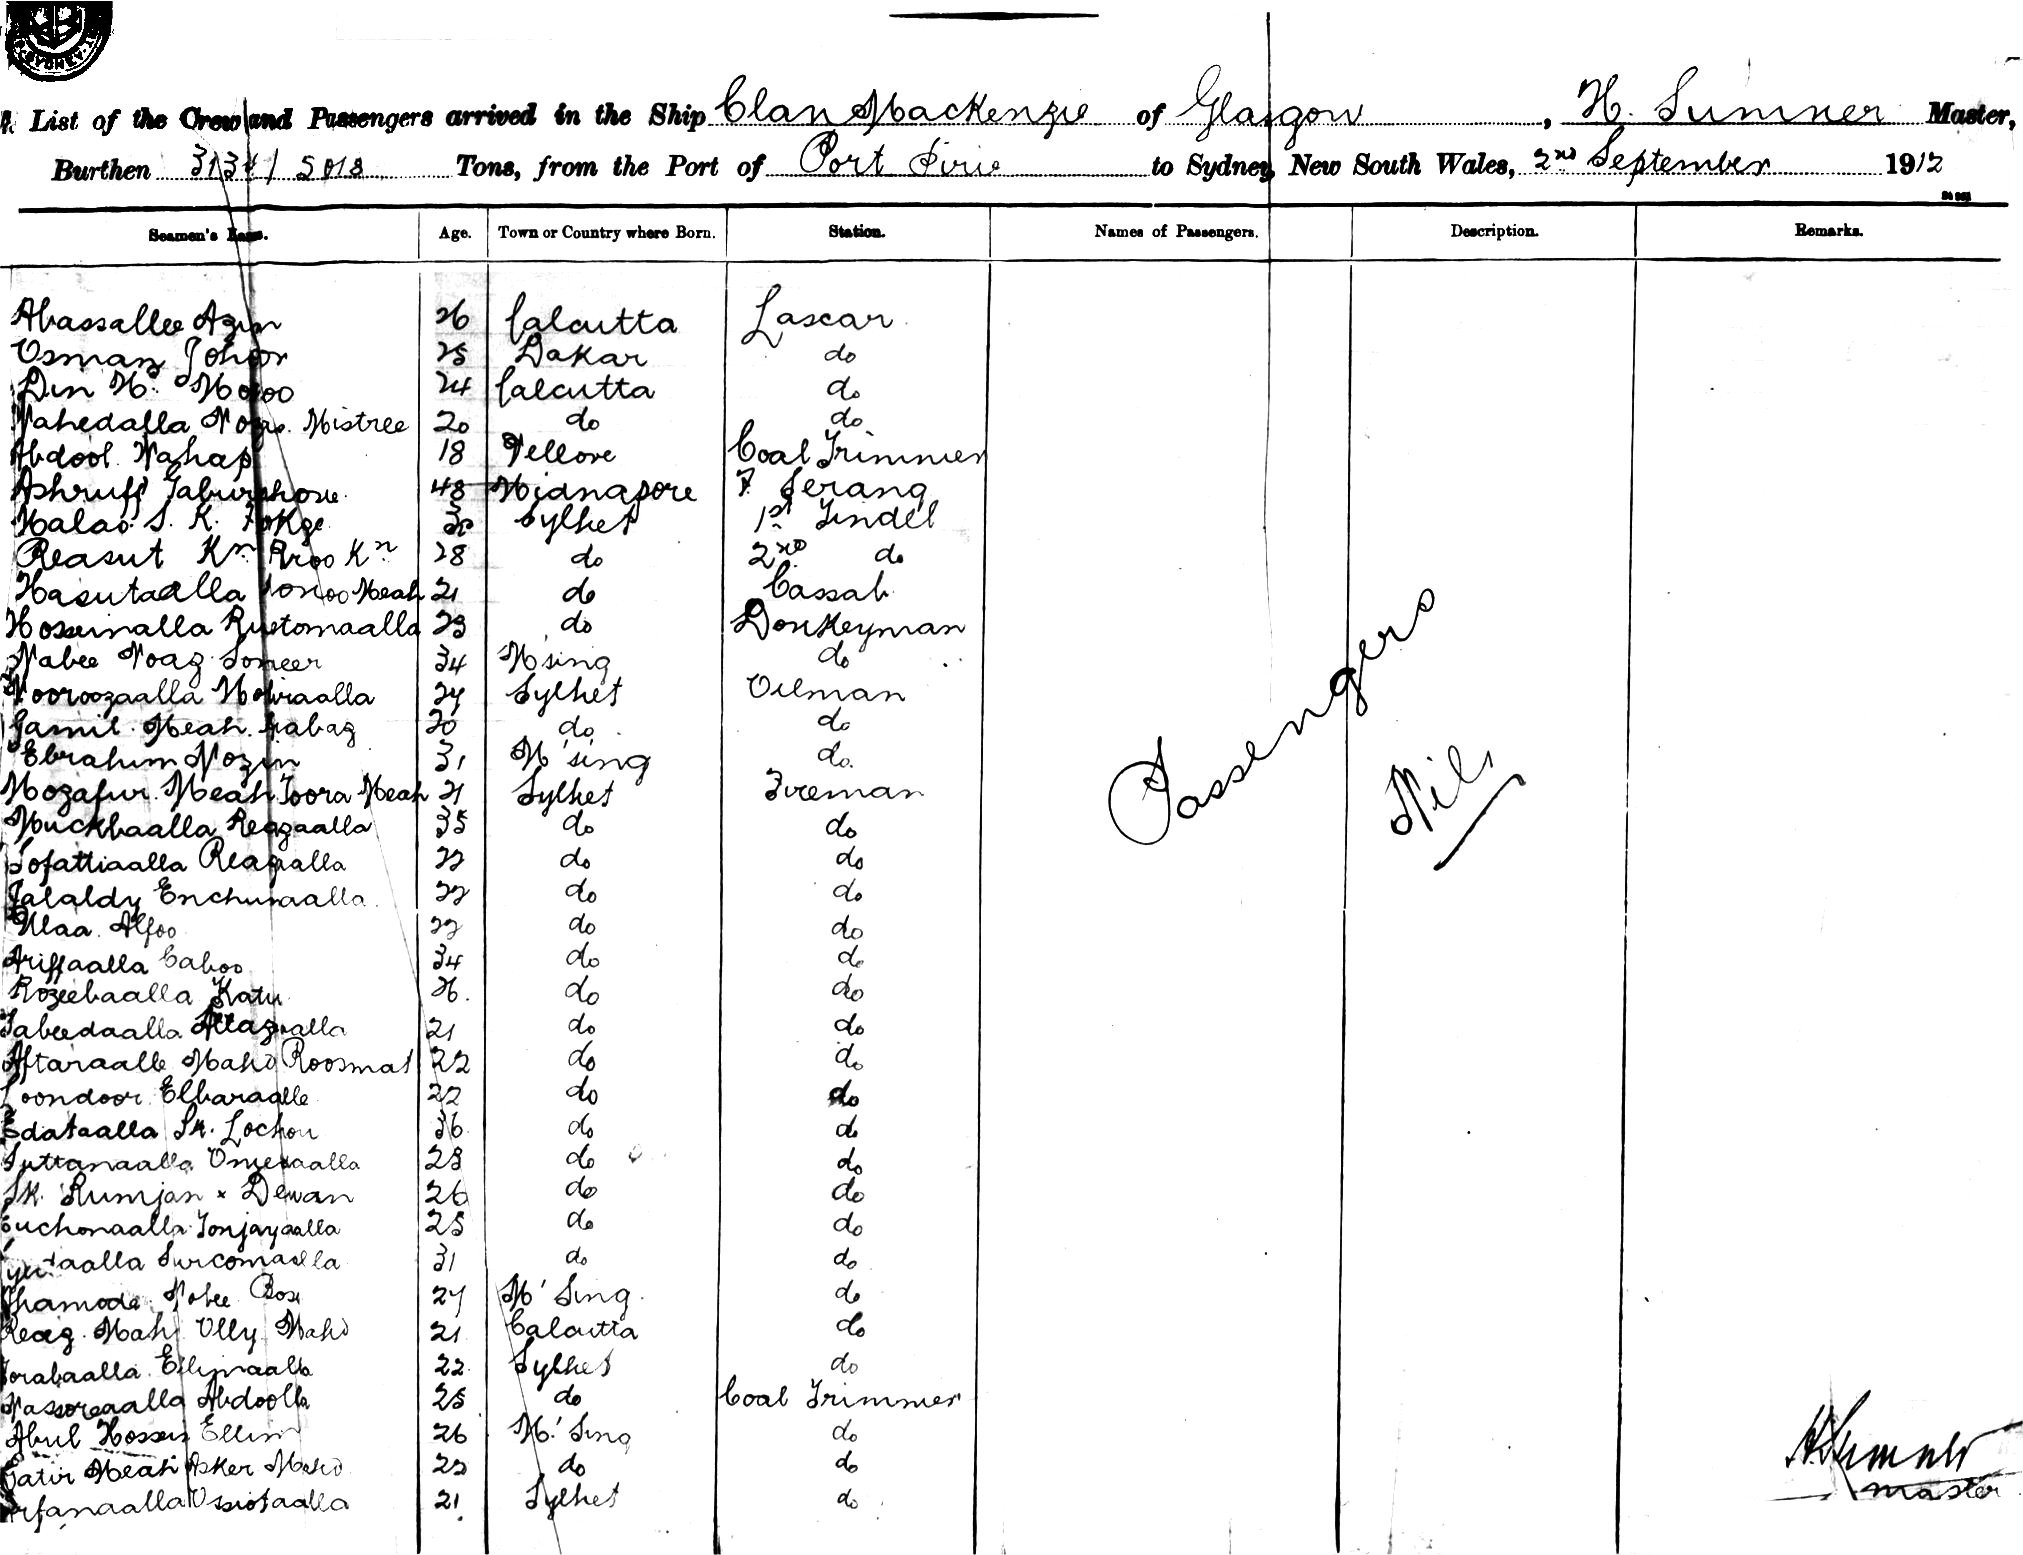 SYDNEY
A List of the Crew and Passengers arrived in the Ship Clan Mackenzie of Glasgow, H. Sumner Master,
Burthen 3134 / 5018 Tons, from the Port of Port Pirie to Sydney, New South Wales, 2nd September 1912
Seamen's Name. Age. Town or Country where Born. Station. Names of Passengers. Description. Remarks.
Abassallee Azim 26 Calcutta Lascar
Osman Johor 25 Dakar do
Din M. 24 Calcutta do
Wahedalla Mistree 20 do do
Abdool Wahap 18 Vellore Coal Trimmer
Ashruff 48 Midnapore F Serang
Malao S. K. 32 Sylhet 1st Tindel
Reasut Kn Aroo Kn 28 do 2nd do
Hasutaalla Sonoo Meah 21 do Cassab
Hosseinalla Rustomaalla 23 do Donkeyman
Nabee Noaz Soneer 34 M'sing do
Nooroozaalla 27 Sylhet Oilman
Jamil Meah Arabaz 20 do do
Ebrahim Nozin 31 M'sing do.
Mozafur Meah Toora Meah 21 Sylhet Fireman
Muckbaalla Reazaalla 35 do do
Sofattiaalla Reazaalla 22 do do
Jalaldy 22 do do
Ullaa Alfoo 22 do do
Ariffaalla Caboo 34 do do
Rozeebaalla Katu 26. do do
Tabeedaalla 21 do do
Aftaraalle Mahd Roosmat 22 do do
Goondoor Elbaraalle 22 do do
Edataalla Sk. Lochon 36 do do
Suttanaalla 23 do do
Sk. Rumjan x Dewan 26 do do
Tonjayaalla 25 do do
Surcomaalla 31 do do
Nobee Box 27 M'Sing do
Reaz Mahd Olly Mahd 21 Calcutta do
Torabaalla 22 Sylhet do
Nassoreaalla Abdoolla 25 do Coal Trimmer
Abul Hossein Ellim 26 M'Sing do
Meah Asker Mahd 22 do do
Irfanaalla 21 Sylhet do
Passengers
Nil,
H Sumner
master